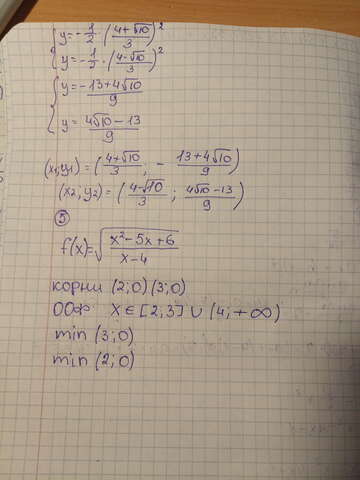 { y = -1/2 · ((4+√10)/3)²
y = -1/2 · ((4-√10)/3)²
{ y = (-13+4√10)/9
y = (4√10-13)/9
(x₁;y₁) = ((4+√10)/3 ; - (13+4√10)/9)
(x₂,y₂) = ((4-√10)/3 ; (4√10-13)/9)
⑤
f(x) = √((x²-5x+6)/(x-4))
корни (2;0) (3;0)
ООФ X ∈ [2;3] ∪ (4;+∞)
min (3;0)
min (2;0)